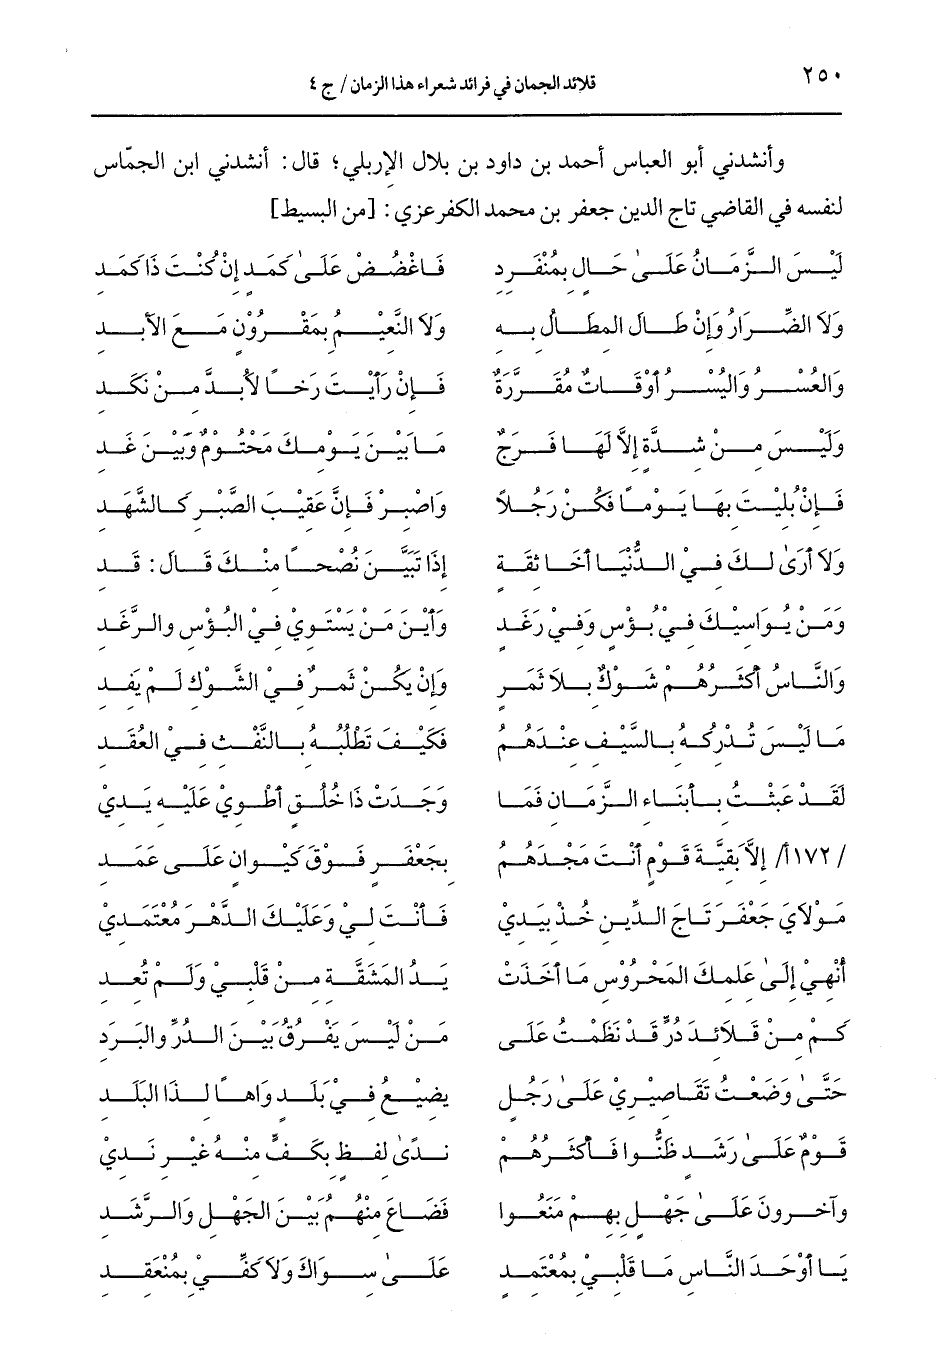 ٢٥٠
قلائد الجمان في فرائد شعراء هذا الزمان / ج ٤
وأنشدني أبو العباس أحمد بن داود بن بلال الإربلي؛ قال: أنشدني ابن الجمّاس
لنفسه في القاضي تاج الدين جعفر بن محمد الكفرعزي: [من البسيط]
لَيْسَ الزَّمَانُ عَلَى حَالٍ بِمُنْفَرِدِ فَاغْضُضْ عَلَى كَمَدٍ إِنْ كُنْتَ ذَا كَمَدِ
وَلَا الضِّرَارُ وَإِنْ طَالَ المِطَالُ بِهِ وَلَا النَّعِيمُ بِمَقْرُوْنٍ مَعَ الأَبَدِ
وَالعُسْرُ وَاليُسْرُ أَوْقَاتٌ مُقَرَّرَةٌ فَإِنْ رَأَيْتَ رَخاً لَابُدَّ مِنْ نَكَدِ
وَلَيْسَ مِنْ شِدَّةٍ إِلاَّ لَهَا فَرَجٌ مَا بَيْنَ يَوْمِكَ مَحْتُومٌ وَبَيْنَ غَدِ
فَإِنْ بُلِيْتَ بِهَا يَوْماً فَكُنْ رَجُلاً وَاصْبِرْ فَإِنَّ عَقِيْبَ الصَّبْرِ كَالشَّهَدِ
وَلَا أَرَى لَكَ فِي الدُّنْيَا أَخَا ثِقَةٍ إِذَا تَبَيَّنَ نُصْحاً مِنْكَ قَالَ: قَدِ
وَمَنْ يُوَاسِيْكَ فِي بُؤْسٍ وَفِي رَغَدٍ وَأَيْنَ مَنْ يَسْتَوِي فِي البُؤْسِ وَالرَّغَدِ
وَالنَّاسُ أَكْثَرُهُمْ شَوْكٌ بِلَا ثَمَرٍ وَإِنْ يَكُنْ ثَمَرٌ فِي الشَّوْكِ لَمْ يَفِدِ
مَا لَيْسَ تُدْرِكُهُ بِالسَّيْفِ عِنْدَهُمُ فَكَيْفَ تَطْلُبُهُ بِالنَّفْثِ فِي العُقَدِ
لَقَدْ عَبَثْتُ بِأَبْنَاءِ الزَّمَانِ فَمَا وَجَدْتُ ذَا خُلُقٍ أَطْوِي عَلَيْهِ يَدِي
/١٧٢أ/ إِلاَّ بَقِيَّةَ قَوْمٍ أَنْتَ مَجْدُهُمُ بِجَعْفَرٍ فَوْقَ كَيْوَانٍ عَلَى عَمَدِ
مَوْلَايَ جَعْفَرَ تَاجَ الدِّيْنِ خُذْ بِيَدِي فَأَنْتَ لِي وَعَلَيْكَ الدَّهْرَ مُعْتَمَدِي
أُنْهِي إِلَى عِلْمِكَ المَحْرُوْسِ مَا أَخَذَتْ يَدُ المَشَقَّةِ مِنْ قَلْبِي وَلَمْ تَعُدِ
كَمْ مِنْ قَلَائِدِ دُرٍّ قَدْ نَظَمْتُ عَلَى مَنْ لَيْسَ يَفْرُقُ بَيْنَ الدُّرِّ وَالبَرَدِ
حَتَّى وَضَعْتُ تَقَاصِيْرِي عَلَى رَجُلٍ يَضِيْعُ فِي بَلَدٍ وَاهاً لِذَا البَلَدِ
قَوْمٌ عَلَى رَشَدٍ ظَنُّوا فَأَكْثَرُهُمْ نَدَى لَفْظٍ بِكَفٍّ مِنْهُ غَيْرِ نَدِي
وَآخَرُونَ عَلَى جَهْلٍ بِهِمْ مَنَعُوا فَضَاعَ مِنْهُمْ بَيْنَ الجَهْلِ وَالرَّشَدِ
يَا أَوْحَدَ النَّاسِ مَا قَلْبِي بِمُعْتَمِدٍ عَلَى سِوَاكَ وَلَا كَفِّي بِمُنْعَقِدِ